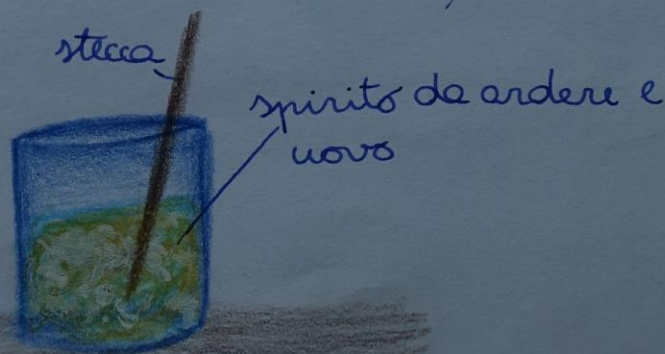 stecca
spirito da ardere e
uovo